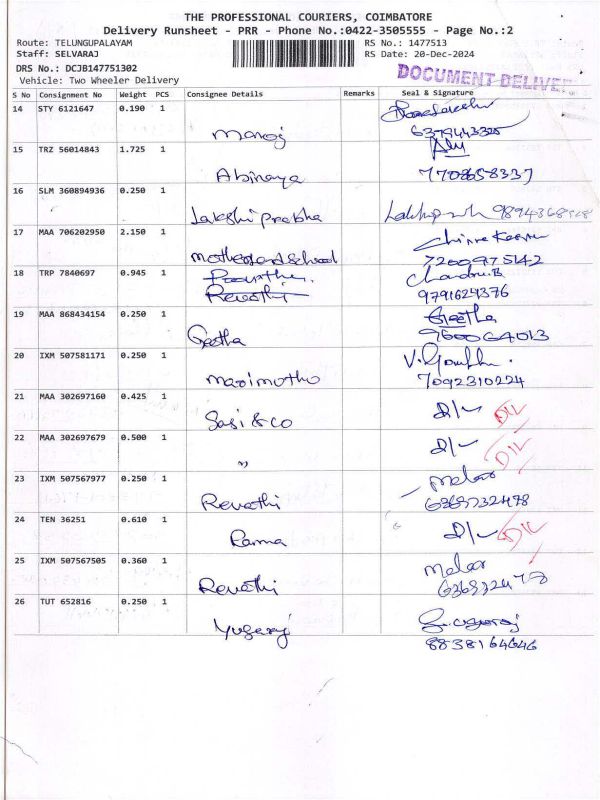 THE PROFESSIONAL COURIERS, COIMBATORE
Delivery Runsheet - PRR - Phone No.:0422-3505555 - Page No.:2
Route: TELUNGUPALAYAM RS No.: 1477513
Staff: SELVARAJ RS Date: 20-Dec-2024
DRS No.: DCJB147751302
DOCUMENT DELIVE
Vehicle: Two Wheeler Delivery
S No Consignment No Weight PCS Consignee Details Remarks Seal & Signature
14 STY 6121647 0.190 1
Manoj
15 TRZ 56014843 1.725 1
Abinaya 7708658337
16 SLM 360894936 0.250 1
Lakshi Prabha
17 MAA 706202950 2.150 1
Motherland School 7200975142
18 TRP 7840697 0.945 1 Chandru.B
Revathi 9791624376
19 MAA 868434154 0.250 1 Geetha
Geetha 9600064013
20 IXM 507581171 0.250 1
Marimuthu 7092310224
21 MAA 302697160 0.425 1 D/L
Sasi & Co
22 MAA 302697679 0.500 1 D/L
"
23 IXM 507567977 0.250 1
Revathi
24 TEN 36251 0.610 1 D/L
Ramma
25 IXM 507567505 0.360 1
Revathi
26 TUT 652816 0.250 1
Yugaraj 8838164646